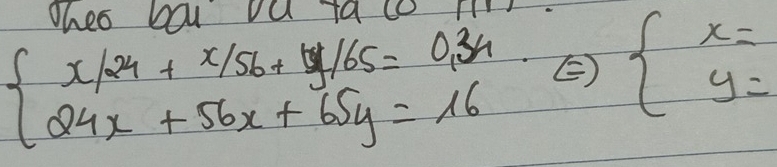 Theo bài ta có
{ x/24 + x/56 + y/65 = 0,34 . ⇔ { x =
24x + 56x + 65y = 16 y =